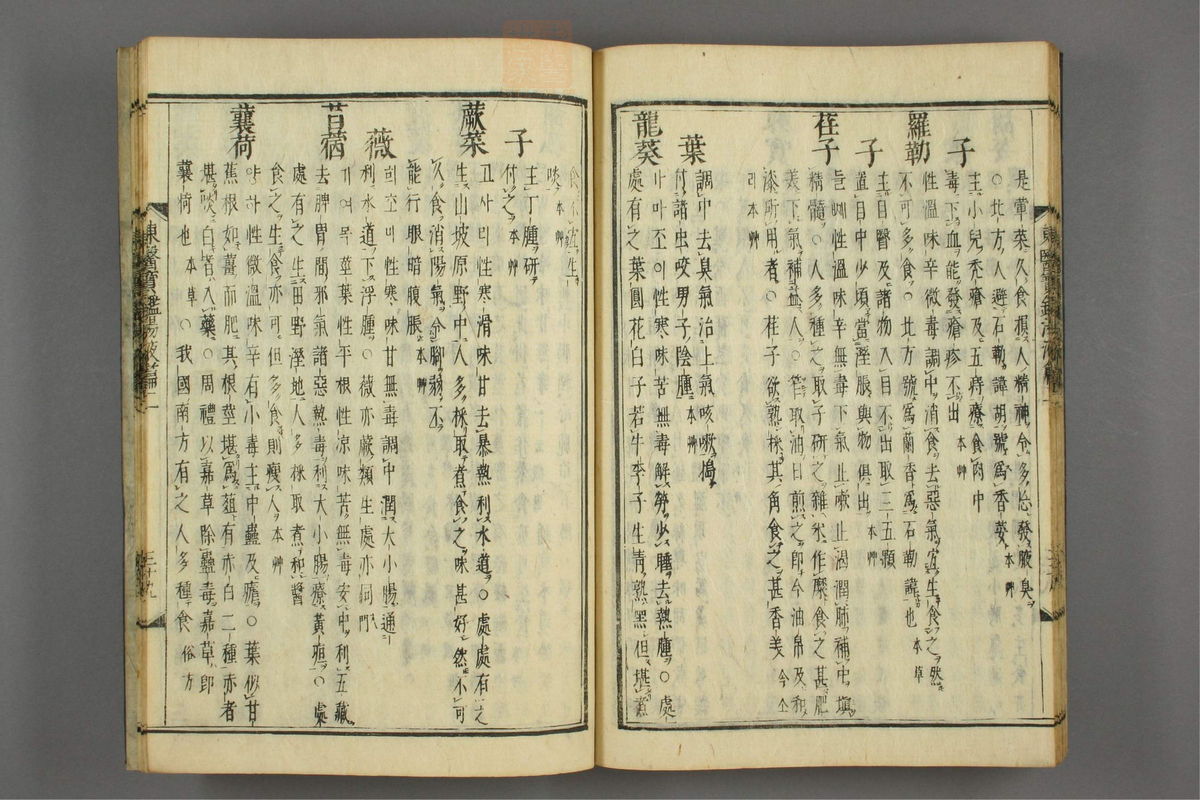 是葷菜久食損人精神令多忘發腋臭 本艸
○北方人避石勒諱胡號爲香荽 本艸
子 主小兒禿瘡及五痔療食肉中
毒下血能發瘡疹不出 本艸
羅勒 性溫味辛微毒調中消食去惡氣宜生食之然
不可多食○北方號爲蘭香爲石勒諱也 本草
子 主目瞖及諸物入目不出取三五顆
置目中少頃當溼脹與物俱出 本艸
荏子 들ᄢᅢ性溫味辛無毒下氣止嗽止渴潤肺補中塡
精髓○人多種之取子硏之雜米作糜食之甚肥
美下氣補益人○笮取油日煎之卽今油帛及和
漆所用者○荏子欲熟採其角食之甚香美 今呼
리 本艸
葉 調中去臭氣治上氣咳嗽搗
付諸虫咬男子陰腫 本艸
龍葵 가마죠이性寒味苦無毒解勞少睡去熱腫○處
處有之葉圓花白子若牛李子生靑熟黑但堪煮
食不宜生
啖 本艸
子 主丁腫硏
付之 本艸
蕨菜 고사리性寒滑味甘去暴熱利水道○處處有之
生山坡原野中人多採取煮食之味甚好然不可
久食消陽氣令脚弱不
能行眼暗腹脹 本艸
薇 회초미性寒味甘無毒調中潤大小腸通
利水道下浮腫○薇亦蕨類生處亦同 入門
苜蓿 거여목莖葉性平根性涼味苦無毒安中利五藏
去脾胃間邪氣諸惡熱毒利大小腸療黃疸○處
處有之生田野溼地人多採取煮和醬
食之生食亦可但多食則瘦人 本艸
蘘荷 양하性微溫味辛有小毒主中蠱及瘧○葉似甘
蕉根如薑而肥其根莖堪爲葅有赤白二種赤者
堪啖白者入藥○周禮以嘉草除蠱毒嘉草卽
蘘荷也 本草○我國南方有之人多種食 俗方
東醫寶鑑湯液篇
三十九